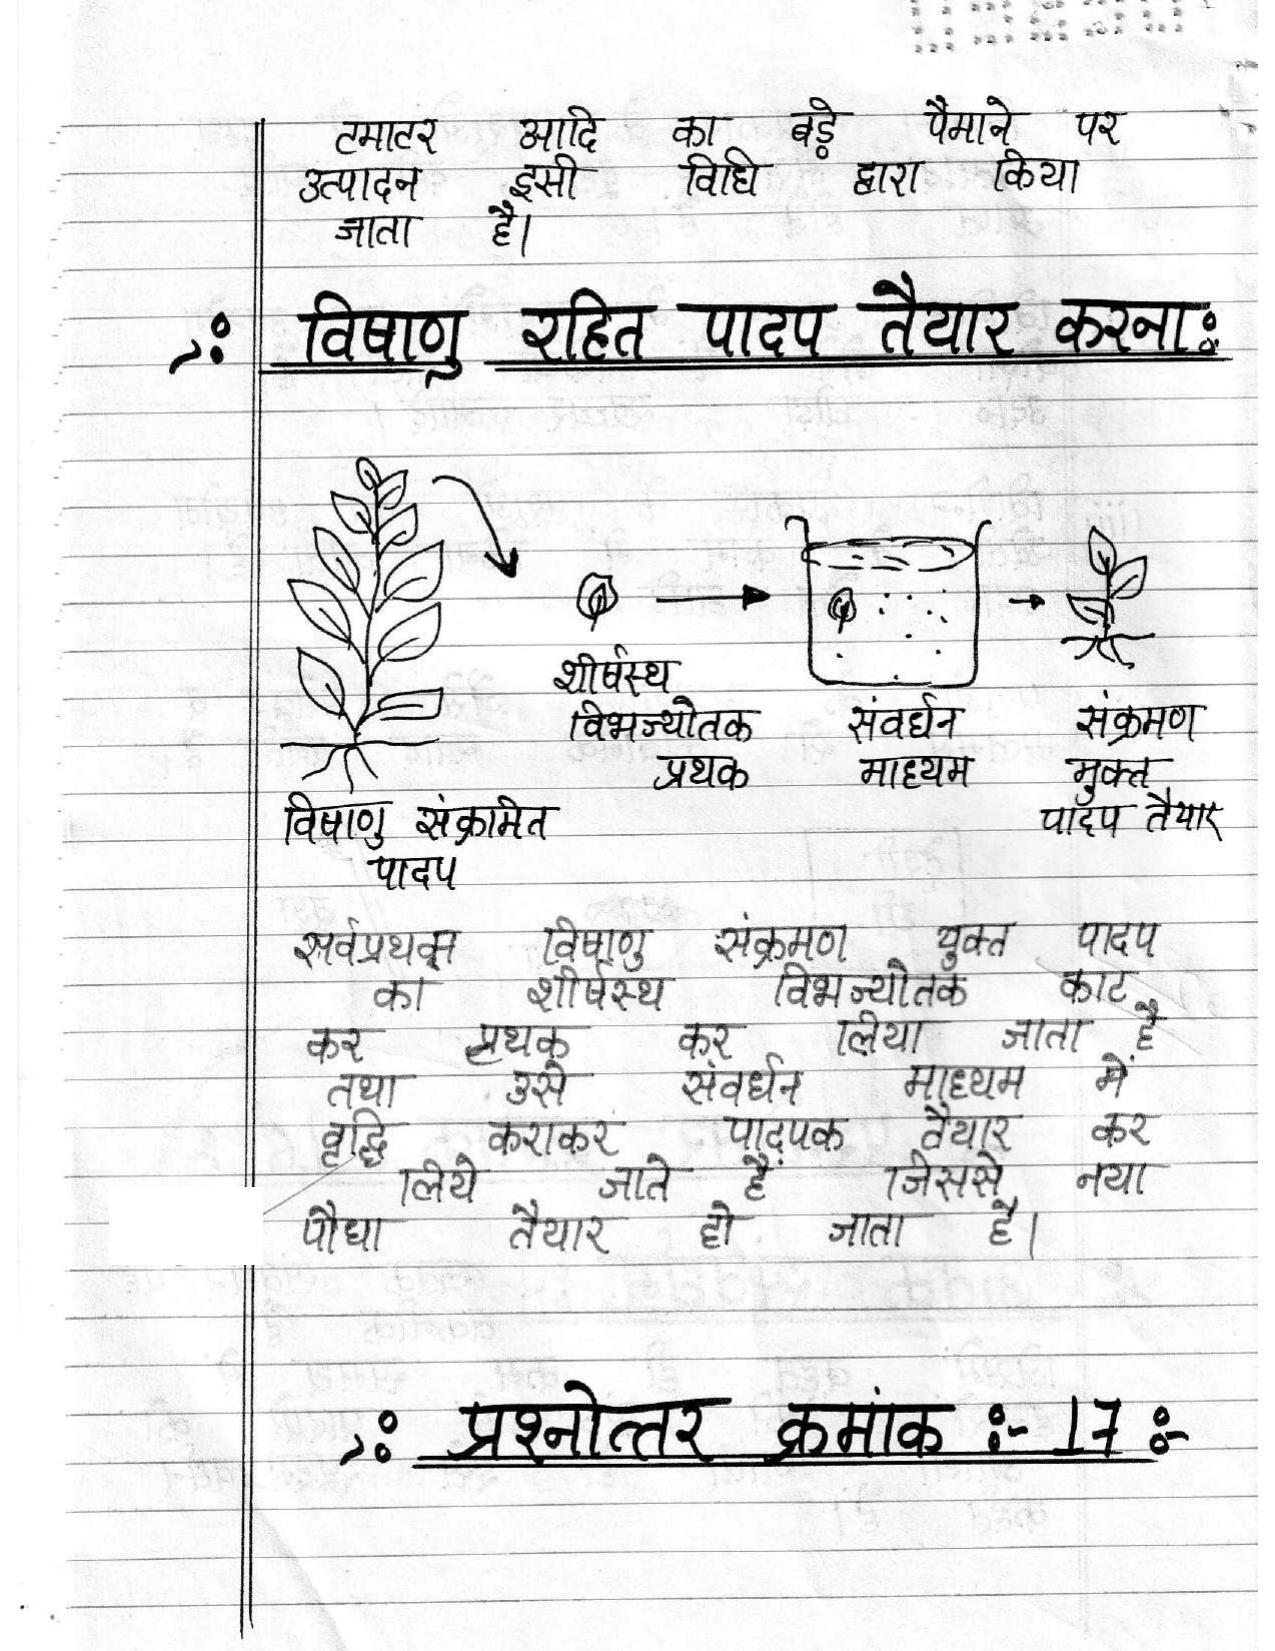 टमाटर आदि का बड़े पैमाने पर
उत्पादन इसी विधि द्वारा किया
जाता है।
विषाणु रहित पादप तैयार करना:
शीर्षस्थ
विभज्योतक संवर्धन संक्रमण
प्रथक माध्यम मुक्त
विषाणु संक्रामित पादप तैयार
पादप
सर्वप्रथम विषाणु संक्रमण युक्त पादप
का शीर्षस्थ विभज्योतक काट
कर प्रथक कर लिया जाता है
तथा उसे संवर्धन माध्यम में
वृद्धि कराकर पादपक तैयार कर
लिये जाते हैं जिससे नया
पौधा तैयार हो जाता है।
प्रश्नोत्तर क्रमांक :- 17 :-